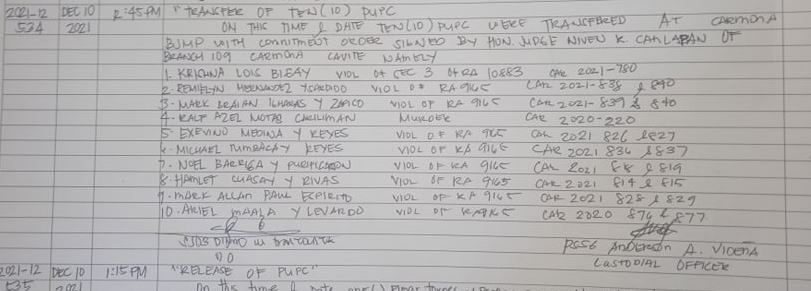 2021-12 DEC 10 2:45PM "TRANSFER OF TEN (10) PUPC
534 2021 ON THIS TIME & DATE TEN (10) PUPC WERE TRANSFERED AT CARMONA
BJMP WITH COMMITMENT ORDER SIGNED BY HON. JUDGE NIVEN R. CANLAPAN OF
BRANCH 109 CARMONA CAVITE NAMELY
1. KRISHNA LOIS BIGAY VIOL OF SEC 3 OF RA 10883 CAR 2021-780
2. REMIELYN HERNANDEZ Y VIOL OF RA 9165 CAR 2021-838 & 840
3. MARK BRAIAN Y ZAPICO VIOL OF RA 9165 CAR 2021-839 & 840
4. RALF AZEL MURDER CAR 2020-220
5. EXEVINO MEDINA Y REYES VIOL OF RA 9165 CAR 2021 826 & 827
6. MICHAEL TUMBAGAY REYES VIOL OF RA 9165 CAR 2021 836 & 837
7. NOEL BARRIGA Y PURIFICACION VIOL OF RA 9165 CAR 2021 & 819
8. HAMLET CUASAY Y RIVAS VIOL OF RA 9165 CAR 2021 814 & 815
9. MARK ALLAN PAUL ESPIRITO VIOL OF RA 9165 CAR 2021 828 & 829
10. ARIEL MAALA Y LEVARDO VIOL OF CAR 2020 876 & 877
PSSG ANDERSON A. VICEÑA
CUSTODIAL OFFICER
2021-12 DEC 10 1:15 PM "RELEASE OF PUPC"
535 2021 On this time & date